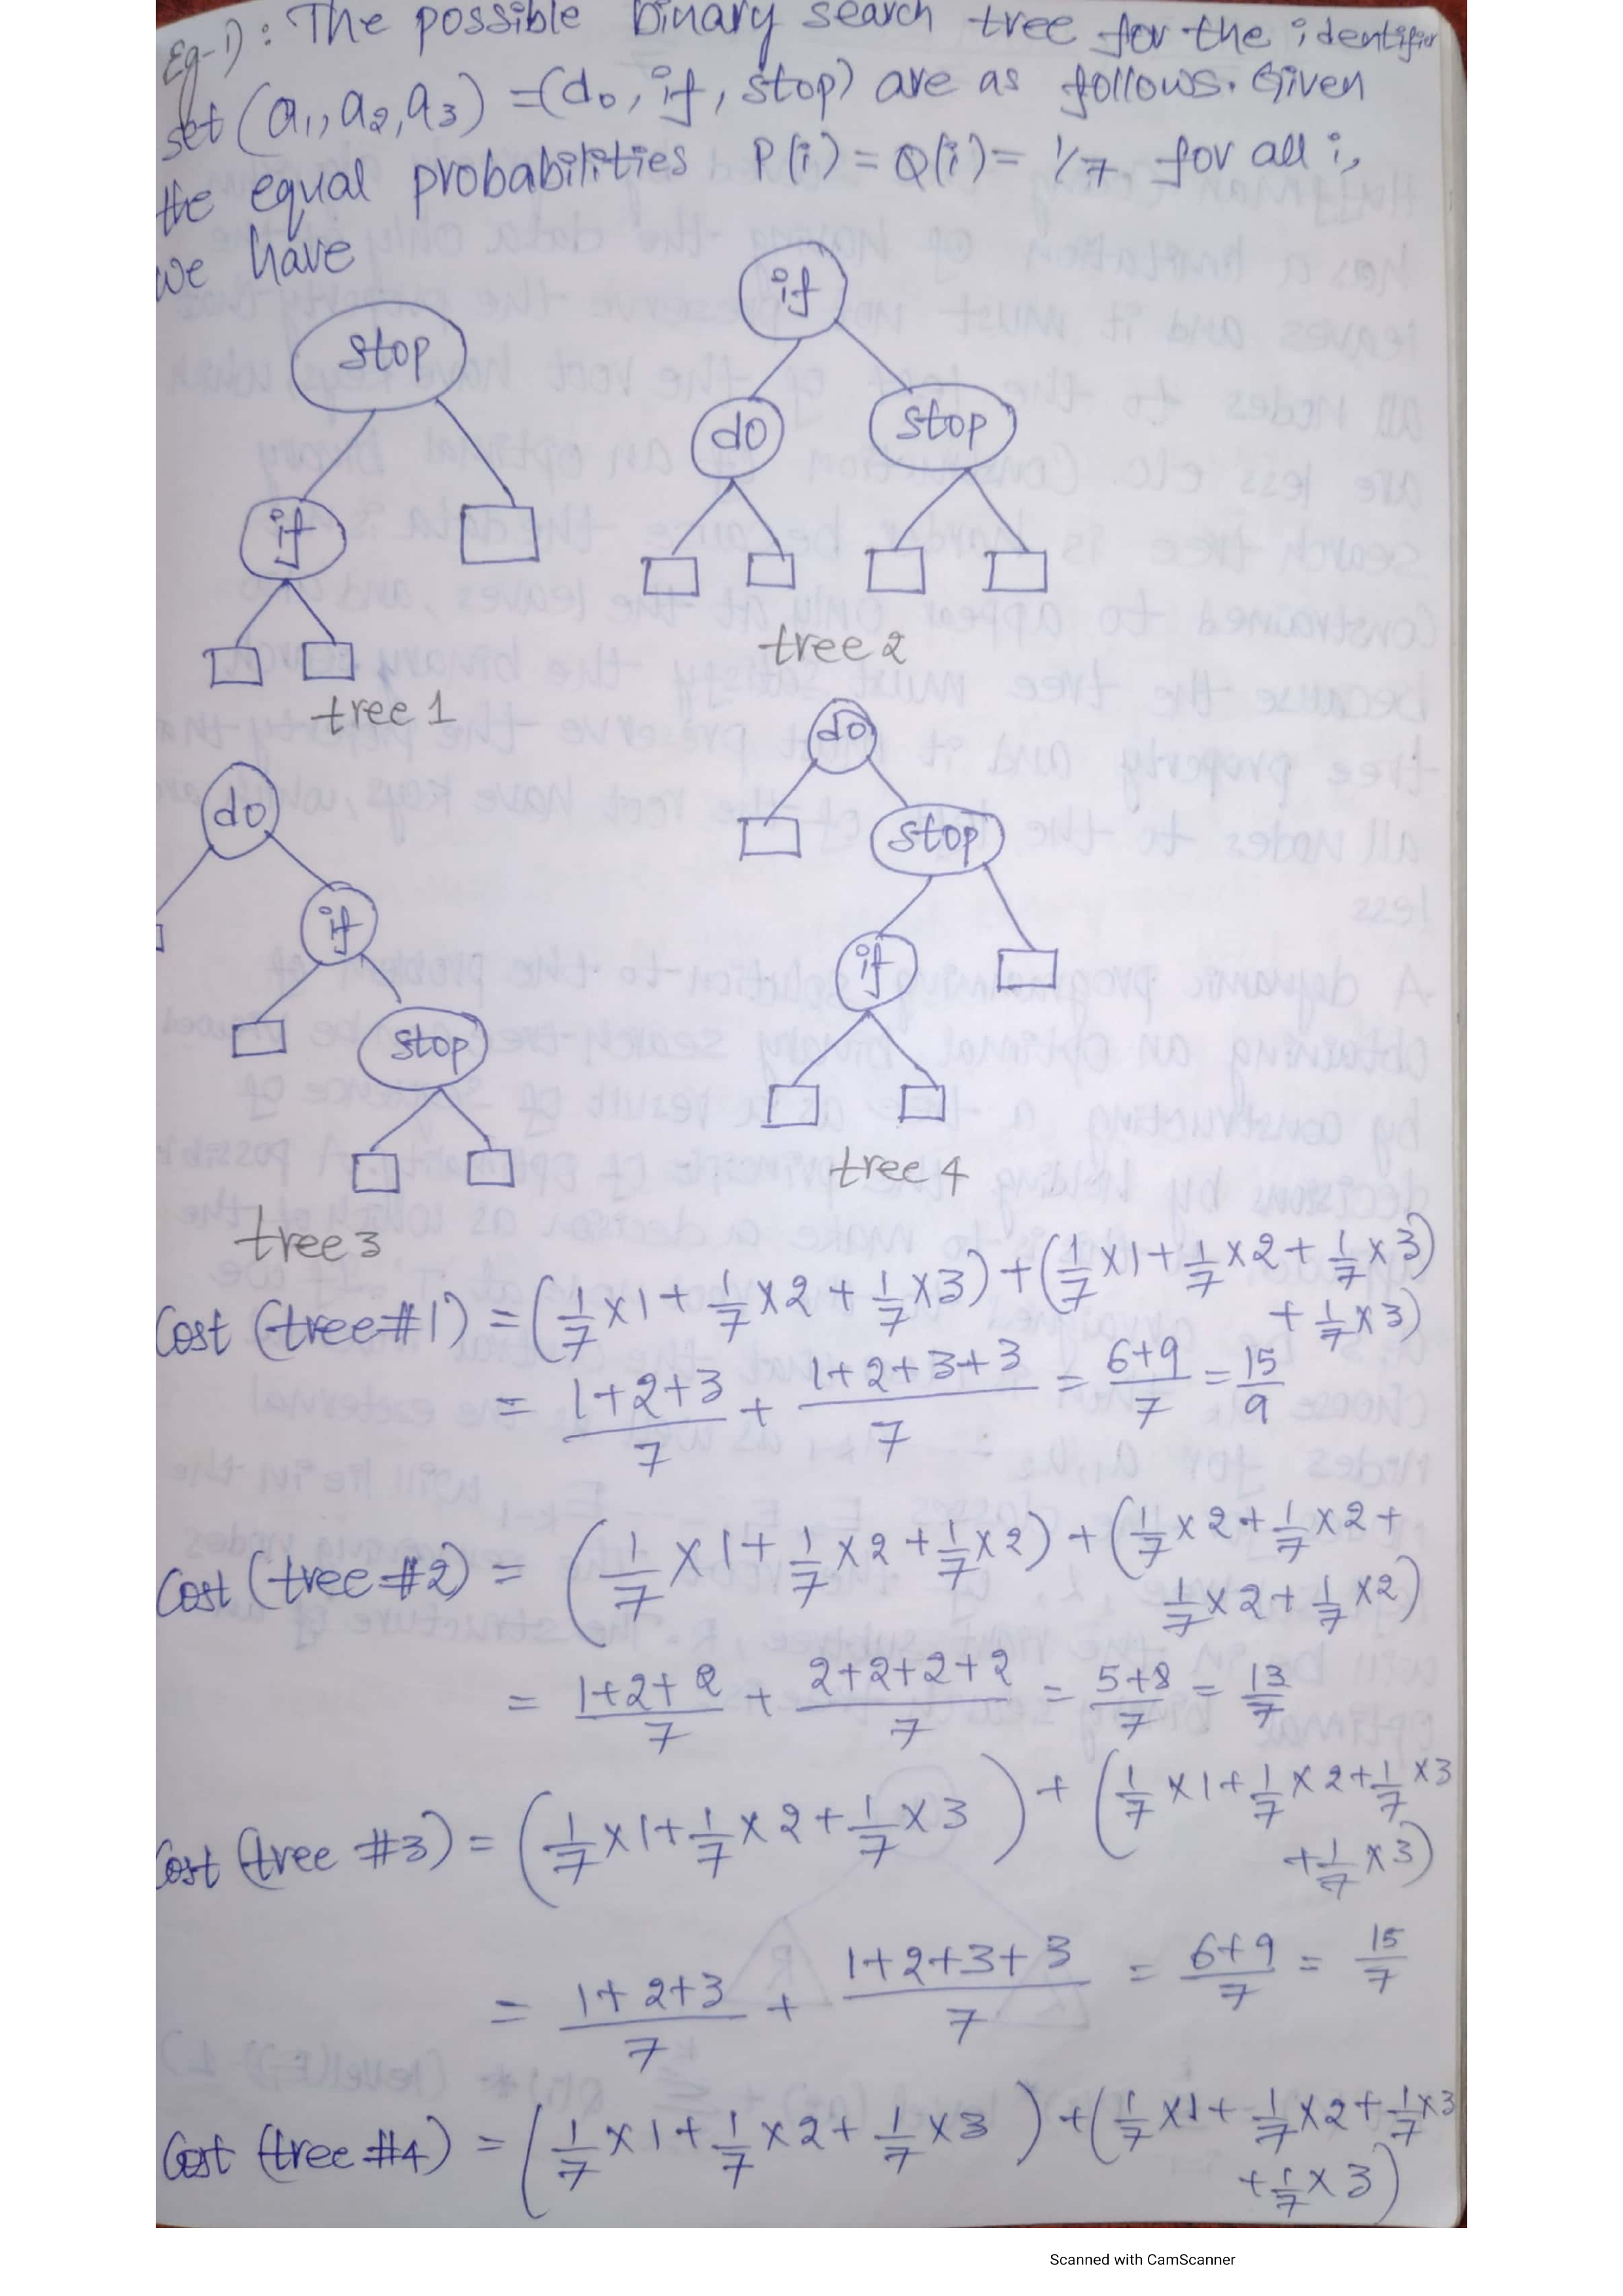 Eg-1): The possible binary search tree for the identifier
set (a1, a2, a3) = (do, if, stop) are as follows. Given
the equal probabilities P(i) = Q(i) = 1/7 for all i,
we have
stop
if
tree 1
if
do stop
tree 2
do
if
stop
tree 3
do
stop
if
tree 4
Cost (tree #1) = (1/7 x 1 + 1/7 x 2 + 1/7 x 3) + (1/7 x 1 + 1/7 x 2 + 1/7 x 3
+ 1/7 x 3)
= 1+2+3/7 + 1+2+3+3/7 = 6+9/7 = 15/9
Cost (tree #2) = (1/7 x 1 + 1/7 x 2 + 1/7 x 2) + (1/7 x 2 + 1/7 x 2 +
1/7 x 2 + 1/7 x 2)
= 1+2+2/7 + 2+2+2+2/7 = 5+8/7 = 13/7
Cost (tree #3) = (1/7 x 1 + 1/7 x 2 + 1/7 x 3) + (1/7 x 1 + 1/7 x 2 + 1/7 x 3
+ 1/7 x 3)
= 1+2+3/7 + 1+2+3+3/7 = 6+9/7 = 15/7
Cost (tree #4) = (1/7 x 1 + 1/7 x 2 + 1/7 x 3) + (1/7 x 1 + 1/7 x 2 + 1/7 x 3
+ 1/7 x 3)
Scanned with CamScanner